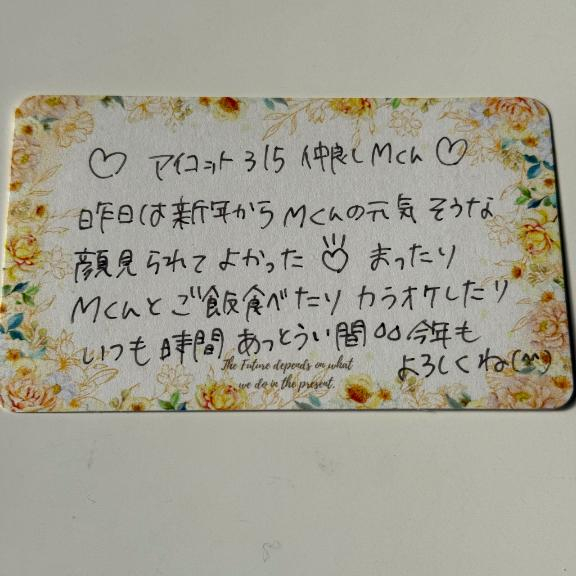 ♡ アイコット315 仲良しMくん ♡
昨日は新年からMくんの元気そうな
顔見られてよかった♡ まったり
Mくんとご飯食べたりカラオケしたり
いつも時間あっとうい間○○今年も
よろしくね(^^)
The Future depends on what
we do in the present.